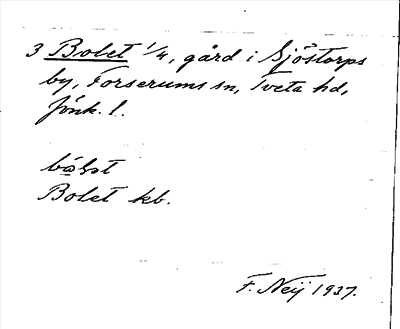 3 Bolet 1/4, gård i Sjöstorps
by, Forserums sn, Tveta hd,
Jönk. l.
Bolet kb.
F. Neij 1937.